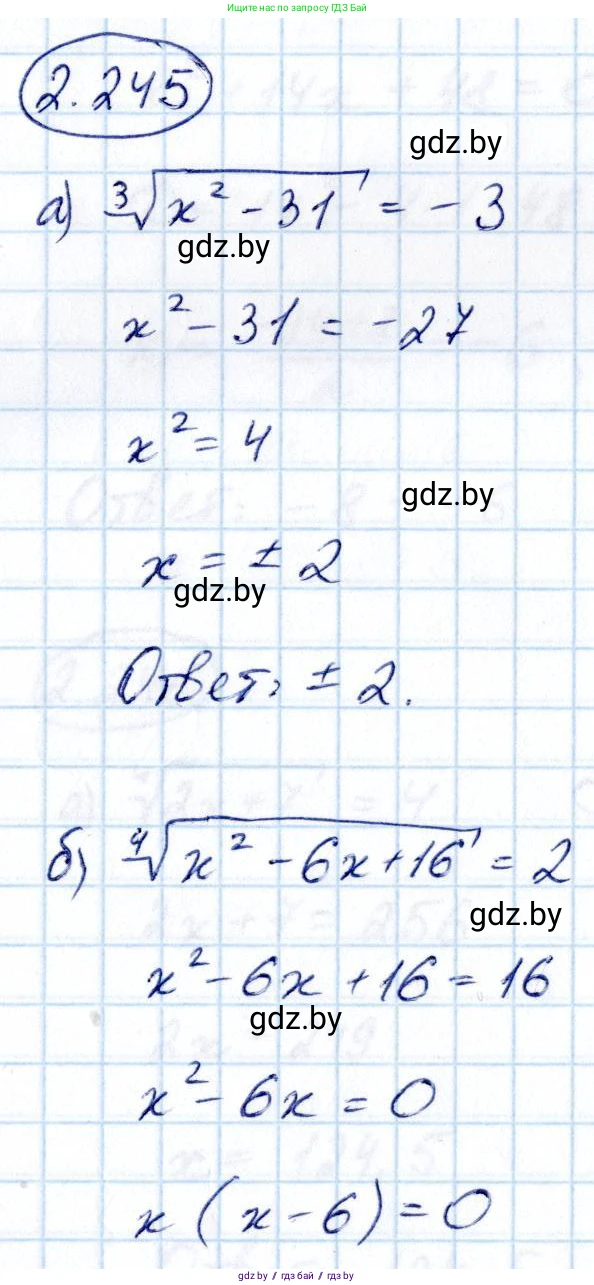 Ищите нас по запросу ГДЗ Бай
2.245
gdz.by
а) ∛(x² - 31) = - 3
gdz.by
x² - 31 = -27
x² = 4
gdz.by
x = ± 2
gdz.by
Ответ: ± 2.
б) ∜(x² - 6x + 16) = 2
gdz.by
x² - 6x + 16 = 16
gdz.by
x² - 6x = 0
x (x - 6) = 0
gdz.by / гдз бай / гдз by